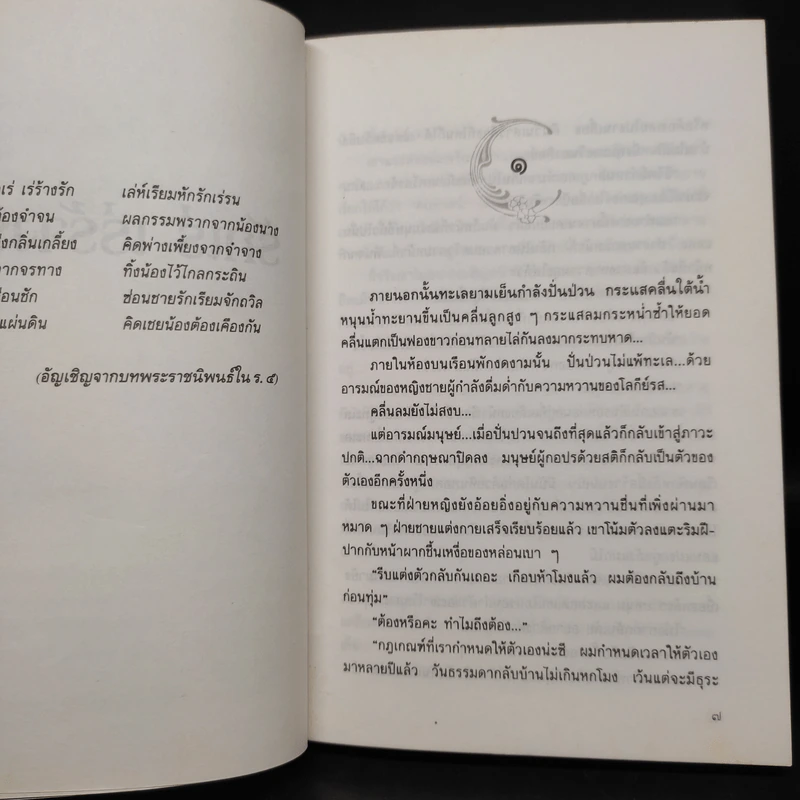 เร่ เร่ร้างรัก เล่ห์เรียมหักรักเร่รน
องจำจน ผลกรรมพรากจากน้องนาง
งกลิ่นเกลี้ยง คิดพ่างเพี้ยงจากจำจาง
ากจรทาง ทิ้งน้องไว้ไกลกระถิน
อนชัก ซ่อนชายรักเรียมจักถวิล
แผ่นดิน คิดเชยน้องต้องเคืองกัน
(อัญเชิญจากบทพระราชนิพนธ์ใน ร. ๕)
๑
ภายนอกนั้นทะเลยามเย็นกำลังปั่นป่วน กระแสคลื่นใต้น้ำ
หนุนน้ำทะยานขึ้นเป็นคลื่นลูกสูง ๆ กระแสลมกระหน่ำซ้ำให้ยอด
คลื่นแตกเป็นฟองขาวก่อนทลายไล่กันลงมากระทบหาด...
ภายในห้องบนเรือนพักงดงามนั้น ปั่นป่วนไม่แพ้ทะเล...ด้วย
อารมณ์ของหญิงชายผู้กำลังดื่มด่ำกับความหวานของโลกีย์รส...
คลื่นลมยังไม่สงบ...
แต่อารมณ์มนุษย์...เมื่อปั่นป่วนจนถึงที่สุดแล้วก็กลับเข้าสู่ภาวะ
ปกติ...ฉากดำกฤษณาปิดลง มนุษย์ผู้กอปรด้วยสติก็กลับเป็นตัวของ
ตัวเองอีกครั้งหนึ่ง
ขณะที่ฝ่ายหญิงยังอ้อยอิ่งอยู่กับความหวานชื่นที่เพิ่งผ่านมา
หมาด ๆ ฝ่ายชายแต่งกายเสร็จเรียบร้อยแล้ว เขาโน้มตัวลงแตะริมฝี-
ปากกับหน้าผากชื้นเหงื่อของหล่อนเบา ๆ
“รีบแต่งตัวกลับกันเถอะ เกือบห้าโมงแล้ว ผมต้องกลับถึงบ้าน
ก่อนทุ่ม”
“ต้องหรือคะ ทำไมถึงต้อง...”
“กฎเกณฑ์ที่เรากำหนดให้ตัวเองน่ะซี ผมกำหนดเวลาให้ตัวเอง
มาหลายปีแล้ว วันธรรมดากลับบ้านไม่เกินหกโมง เว้นแต่จะมีธุระ
๗